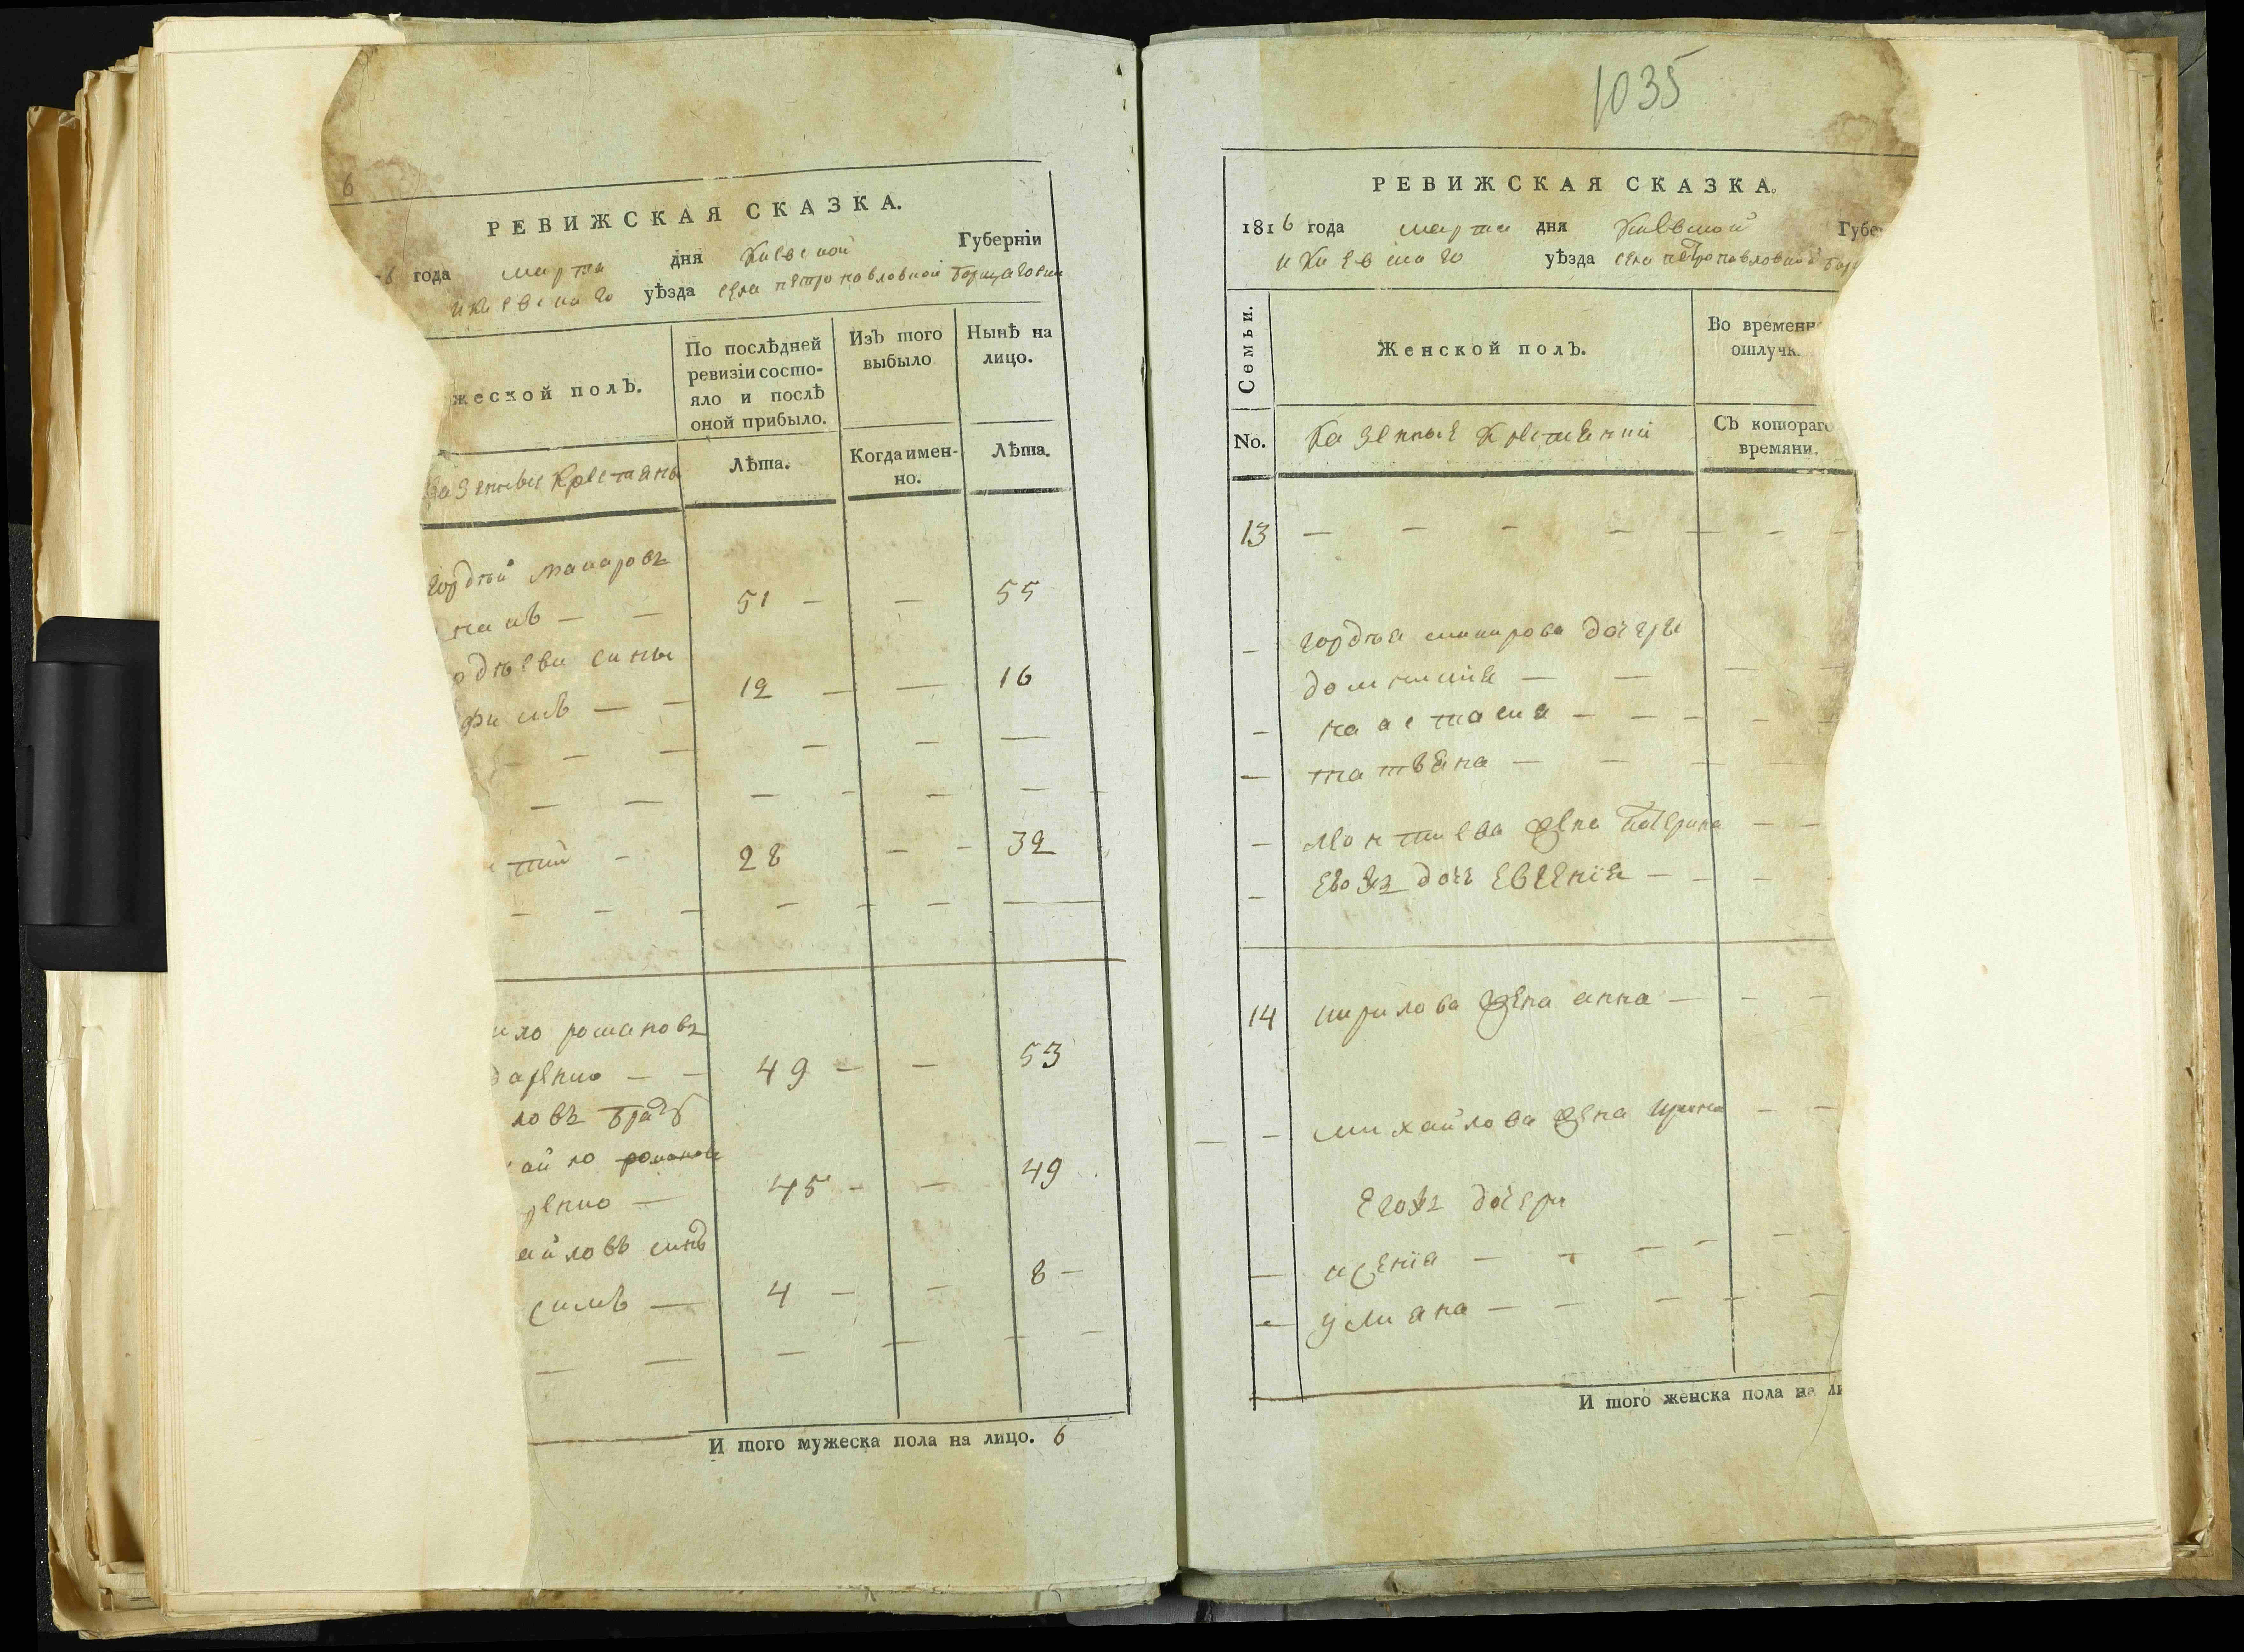 6
РЕВИЖСКАЯ СКАЗКА.
6 года марта дня Киевской Губерніи
и Киевскаго уѣзда села петропавловской Борщаговки
жеской полЪ.
По послѣдней
ревизіи состо-
яло и послѣ
оной прибыло.
ИзЪ того
выбыло
Нынѣ на
лицо.
казенные крестяны
Лѣта.
Когда имен-
но.
Лѣта.
гордѣй макаровъ
51 — — 55
одѣеви сины
12 — — 16
— — — — — —
— — — — — —
тий — 28 — — 32
— — — — — — —
ило романовъ
даренко — — 49 — — 53
ловъ братъ
айло романов
ренко — 45 — — 49
айловъ синъ
симъ — 4 — — 8 —
— — — — — —
И того мужеска пола на лицо. 6
1035
РЕВИЖСКАЯ СКАЗКА.
1816 года марта дня Киевской Губе
и Киевскаго уѣзда села петропавловской Бор
Семьи.
Женской полЪ.
Во временн
отлучк
No.
казенные крестяни
СЪ котораго
времяни.
13 — — — — — — —
— гордѣя макарова дочери
домникия — — — —
— настасия — — — — —
— татьяна — — — —
— леонтиева жена катерина — —
— егожъ дочь евгения — — —
14 кирилова жена анна — — —
— михайлова жена ирина — —
егожъ дочери
— ксения — — — — — —
— улиана — — — — —
И того женска пола на ли